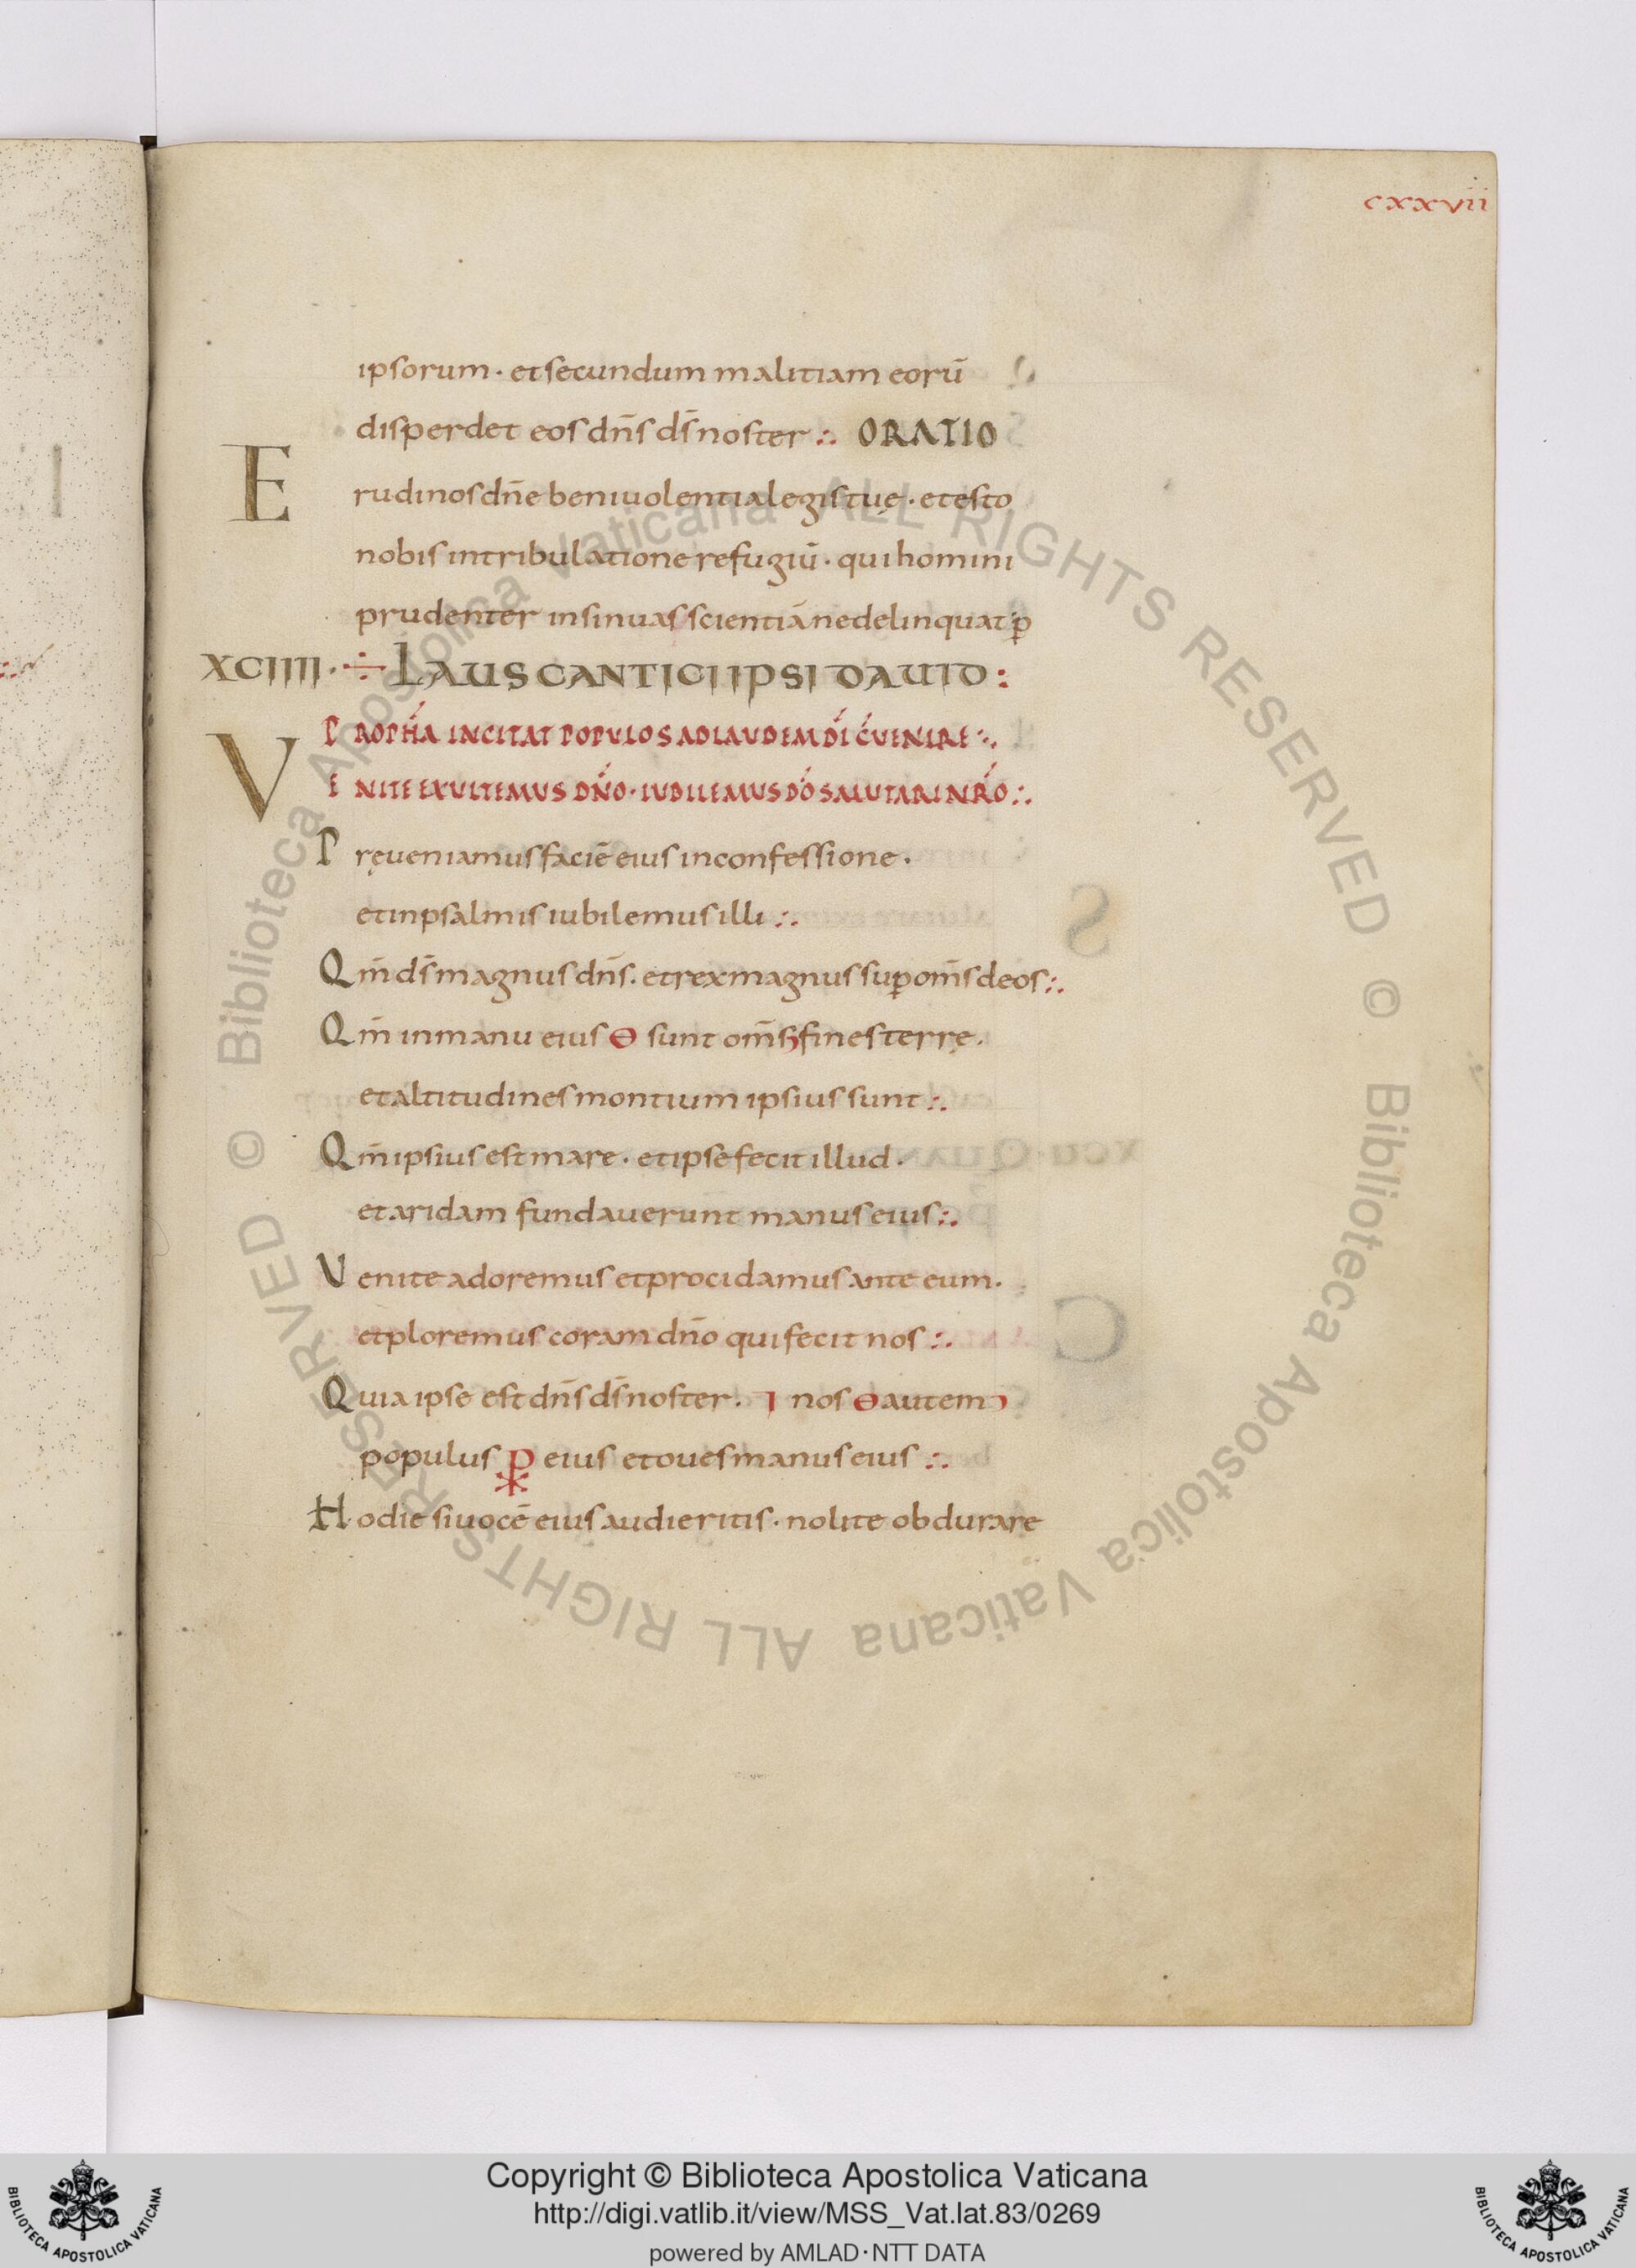 cxxvii
ipsorum · et secundum malitiam eorū
disperdet eos dn̄s ds̄ noster :· ORATIO
Erudi nos dn̄e benivolentia legis tuę · et esto
nobis in tribulatione refugiū · qui homini
prudenter insinuas scientiā ne delinquat · p̱
XCIIII · ÷ LAUS CANTICI IPSI DAUID :
PROPH́A INCITAT POPULOS AD LAUDEM DÍ ĆUENIRE :·
VENITE EXULTEMUS DŃO · IUBILEMUS DÓ SALUTARI NŔO :·
Pręueniamus faciē eius in confessione ·
et in psalmis iubilemus illi :·
Qm̄ ds̄ magnus dn̄s · et rex magnus sup̱ om̄s deos :·
Qm̄ in manu eius ϴ sunt om̄s fines terrę ·
et altitudines montium ipsius sunt :·
Qm̄ ipsius est mare · et ipse fecit illud ·
et aridam fundauerunt manus eius :·
Venite adoremus et procidamus ante eum ·
et ploremus coram dn̄o qui fecit nos :·
Quia ipse est dn̄s ds̄ noster · nos ϴ autem
populus p eius et oues manus eius :·
Hodie si uocē eius audieritis · nolite obdurare
© Biblioteca Apostolica Vaticana ALL RIGHTS RESERVED
© Biblioteca Apostolica Vaticana ALL RIGHTS RESERVED
Copyright © Biblioteca Apostolica Vaticana
http://digi.vatlib.it/view/MSS_Vat.lat.83/0269
powered by AMLAD·NTT DATA
BIBLIOTECA APOSTOLICA VATICANA
BIBLIOTECA APOSTOLICA VATICANA